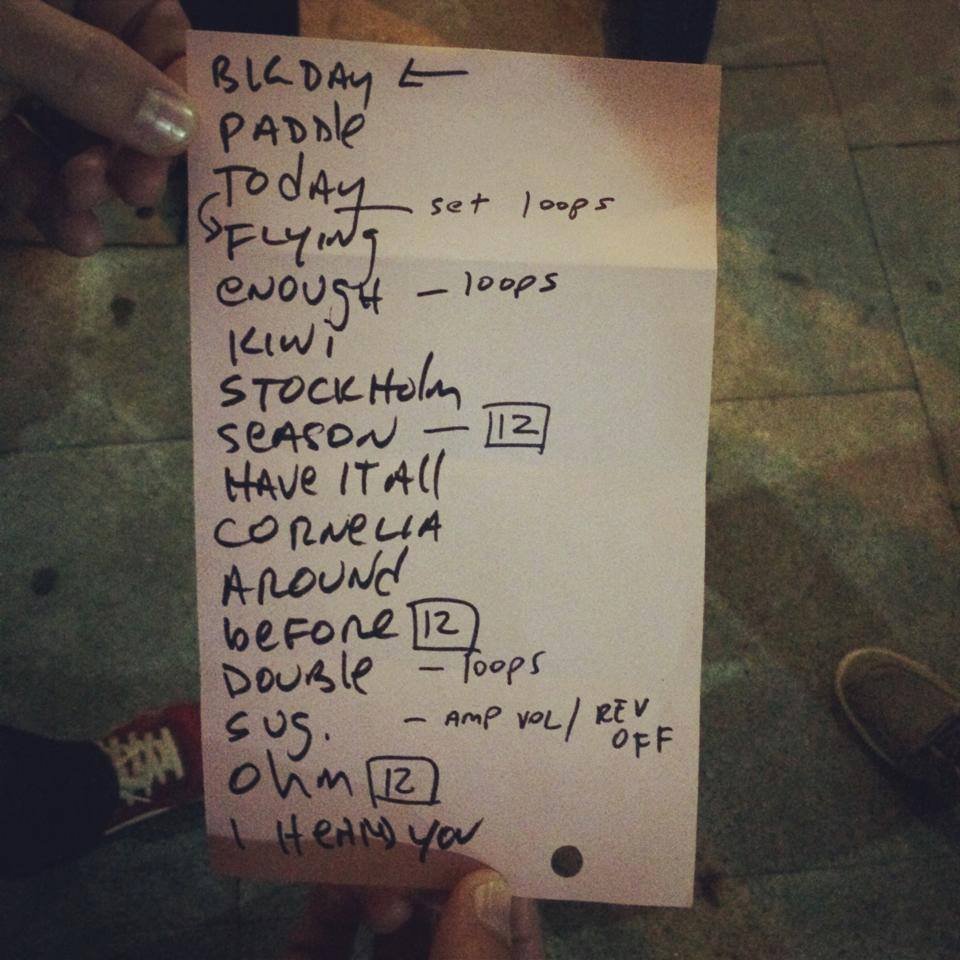 BIG DAY ←
PADDle
TodAy
set loops
FLYINg
eNOUgH - loops
KIWi
STOCKHolm
SeASON - 12
HAVe IT All
CORNeLIA
AROUNd
beFORe 12
DOUBle - loops
SUg. - AMP VOL / REV OFF
Ohm 12
I HeARD YOU